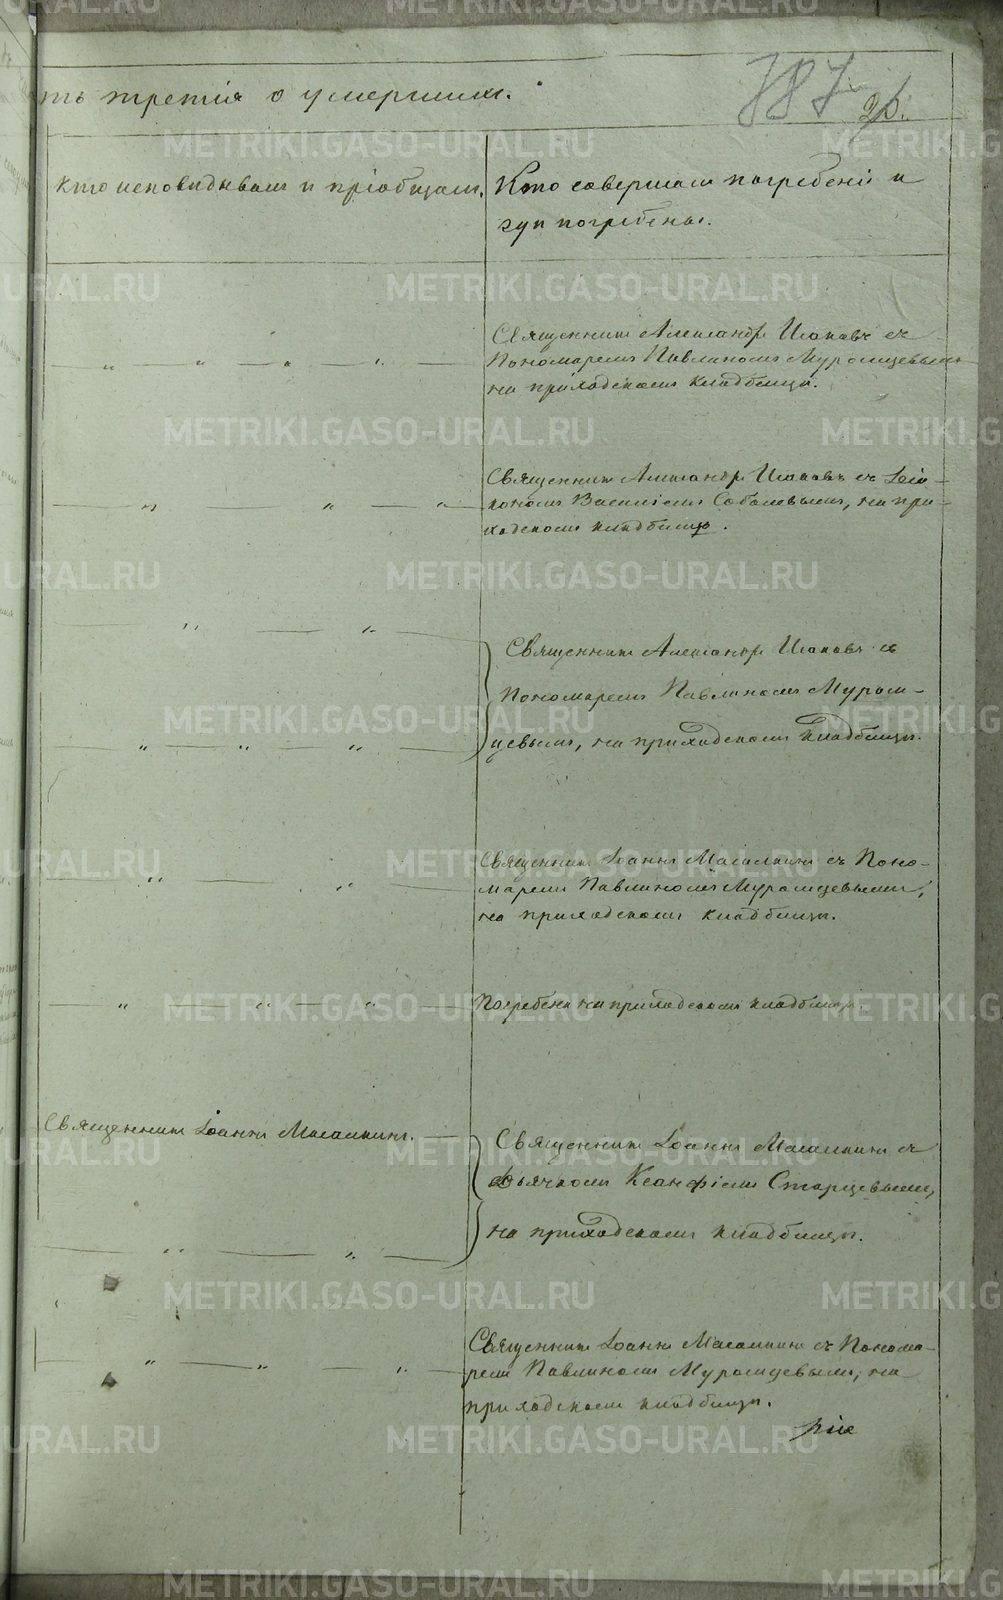 ть третія о умершихъ.
787
26.
Кто исповѣдывалъ и пріобщалъ.
Кто совершалъ погребеніе и
гдѣ погребены.
Священникъ Александръ Исаковъ съ
Пономаремъ Павлиномъ Муромцевымъ
на приходскомъ кладбищѣ.
Священникъ Александръ Исаковъ съ Діа-
кономъ Василіемъ Соболевымъ, на при-
ходскомъ кладбищѣ.
Священникъ Александръ Исаковъ съ
Пономаремъ Павлиномъ Муром-
цевымъ, на приходскомъ кладбищѣ.
Священникъ Іоаннъ Масалкинъ съ Поно-
маремъ Павлиномъ Муромцевымъ,
на приходскомъ кладбищѣ.
Погребенъ на приходскомъ кладбищѣ.
Священникъ Іоаннъ Масалкинъ.
Священникъ Іоаннъ Масалкинъ съ
Дьячкомъ Ксанфіемъ Старцевымъ,
на приходскомъ кладбищѣ.
Священникъ Іоаннъ Масалкинъ съ Понома-
ремъ Павлиномъ Муромцевымъ, на
приходскомъ кладбищѣ.
METRIKI.GASO-URAL.RU